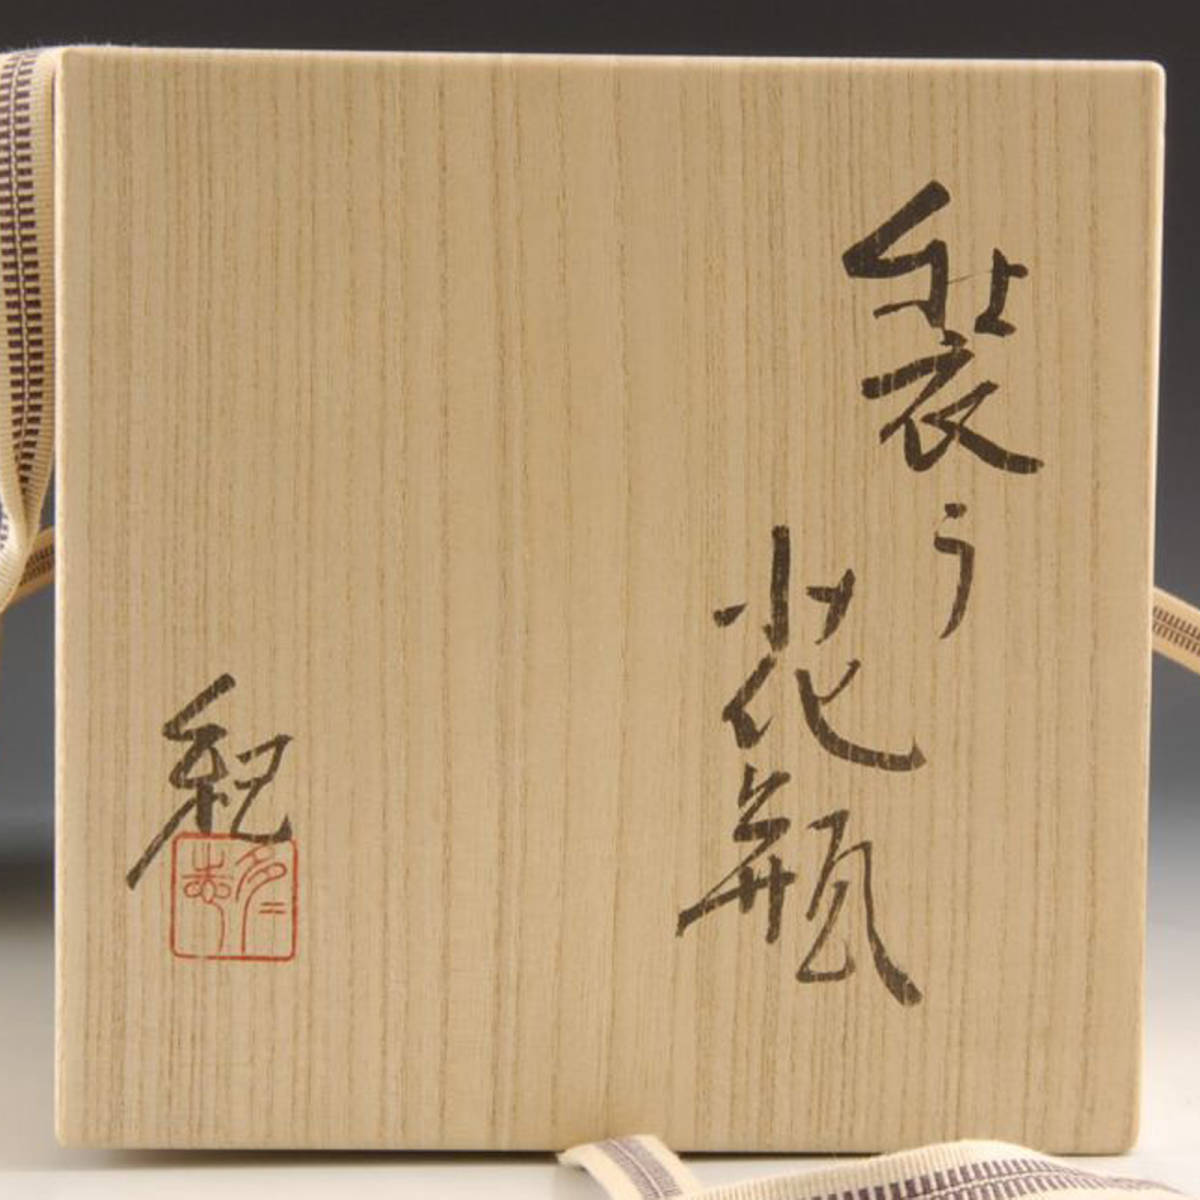 装う
花瓶
紀